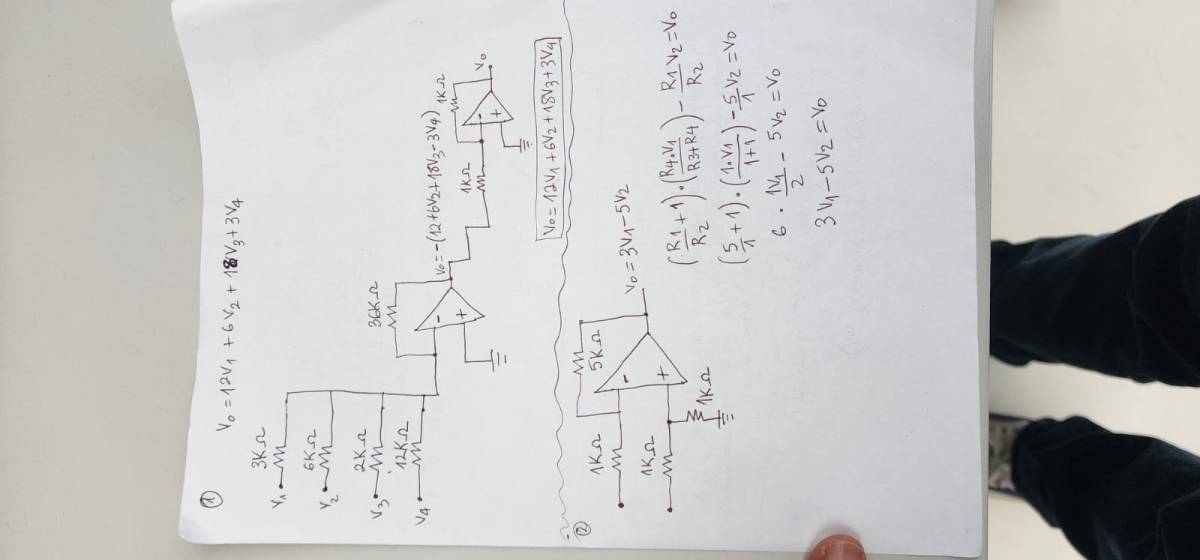 ①
V₀ = 12V₁ + 6V₂ + 18V₃ + 3V₄
3KΩ
V₁
6KΩ
V₂
2KΩ
V₃
12KΩ
V₄
36KΩ
-
+
V₀=-(12+6V₂+18V₃-3V₄)
1KΩ
1KΩ
-
+
V₀
V₀=12V₁+6V₂+18V₃+3V₄
②
1KΩ
1KΩ
5KΩ
-
+
1KΩ
V₀=3V₁-5V₂
(R1/R2+1)·(R4·V1/R3+R4)-R1/R2 V2=V₀
(5/1+1)·(1·V1/1+1)-5/1 V2=V₀
6·1V1/2-5V2=V₀
3V1-5V2=V₀